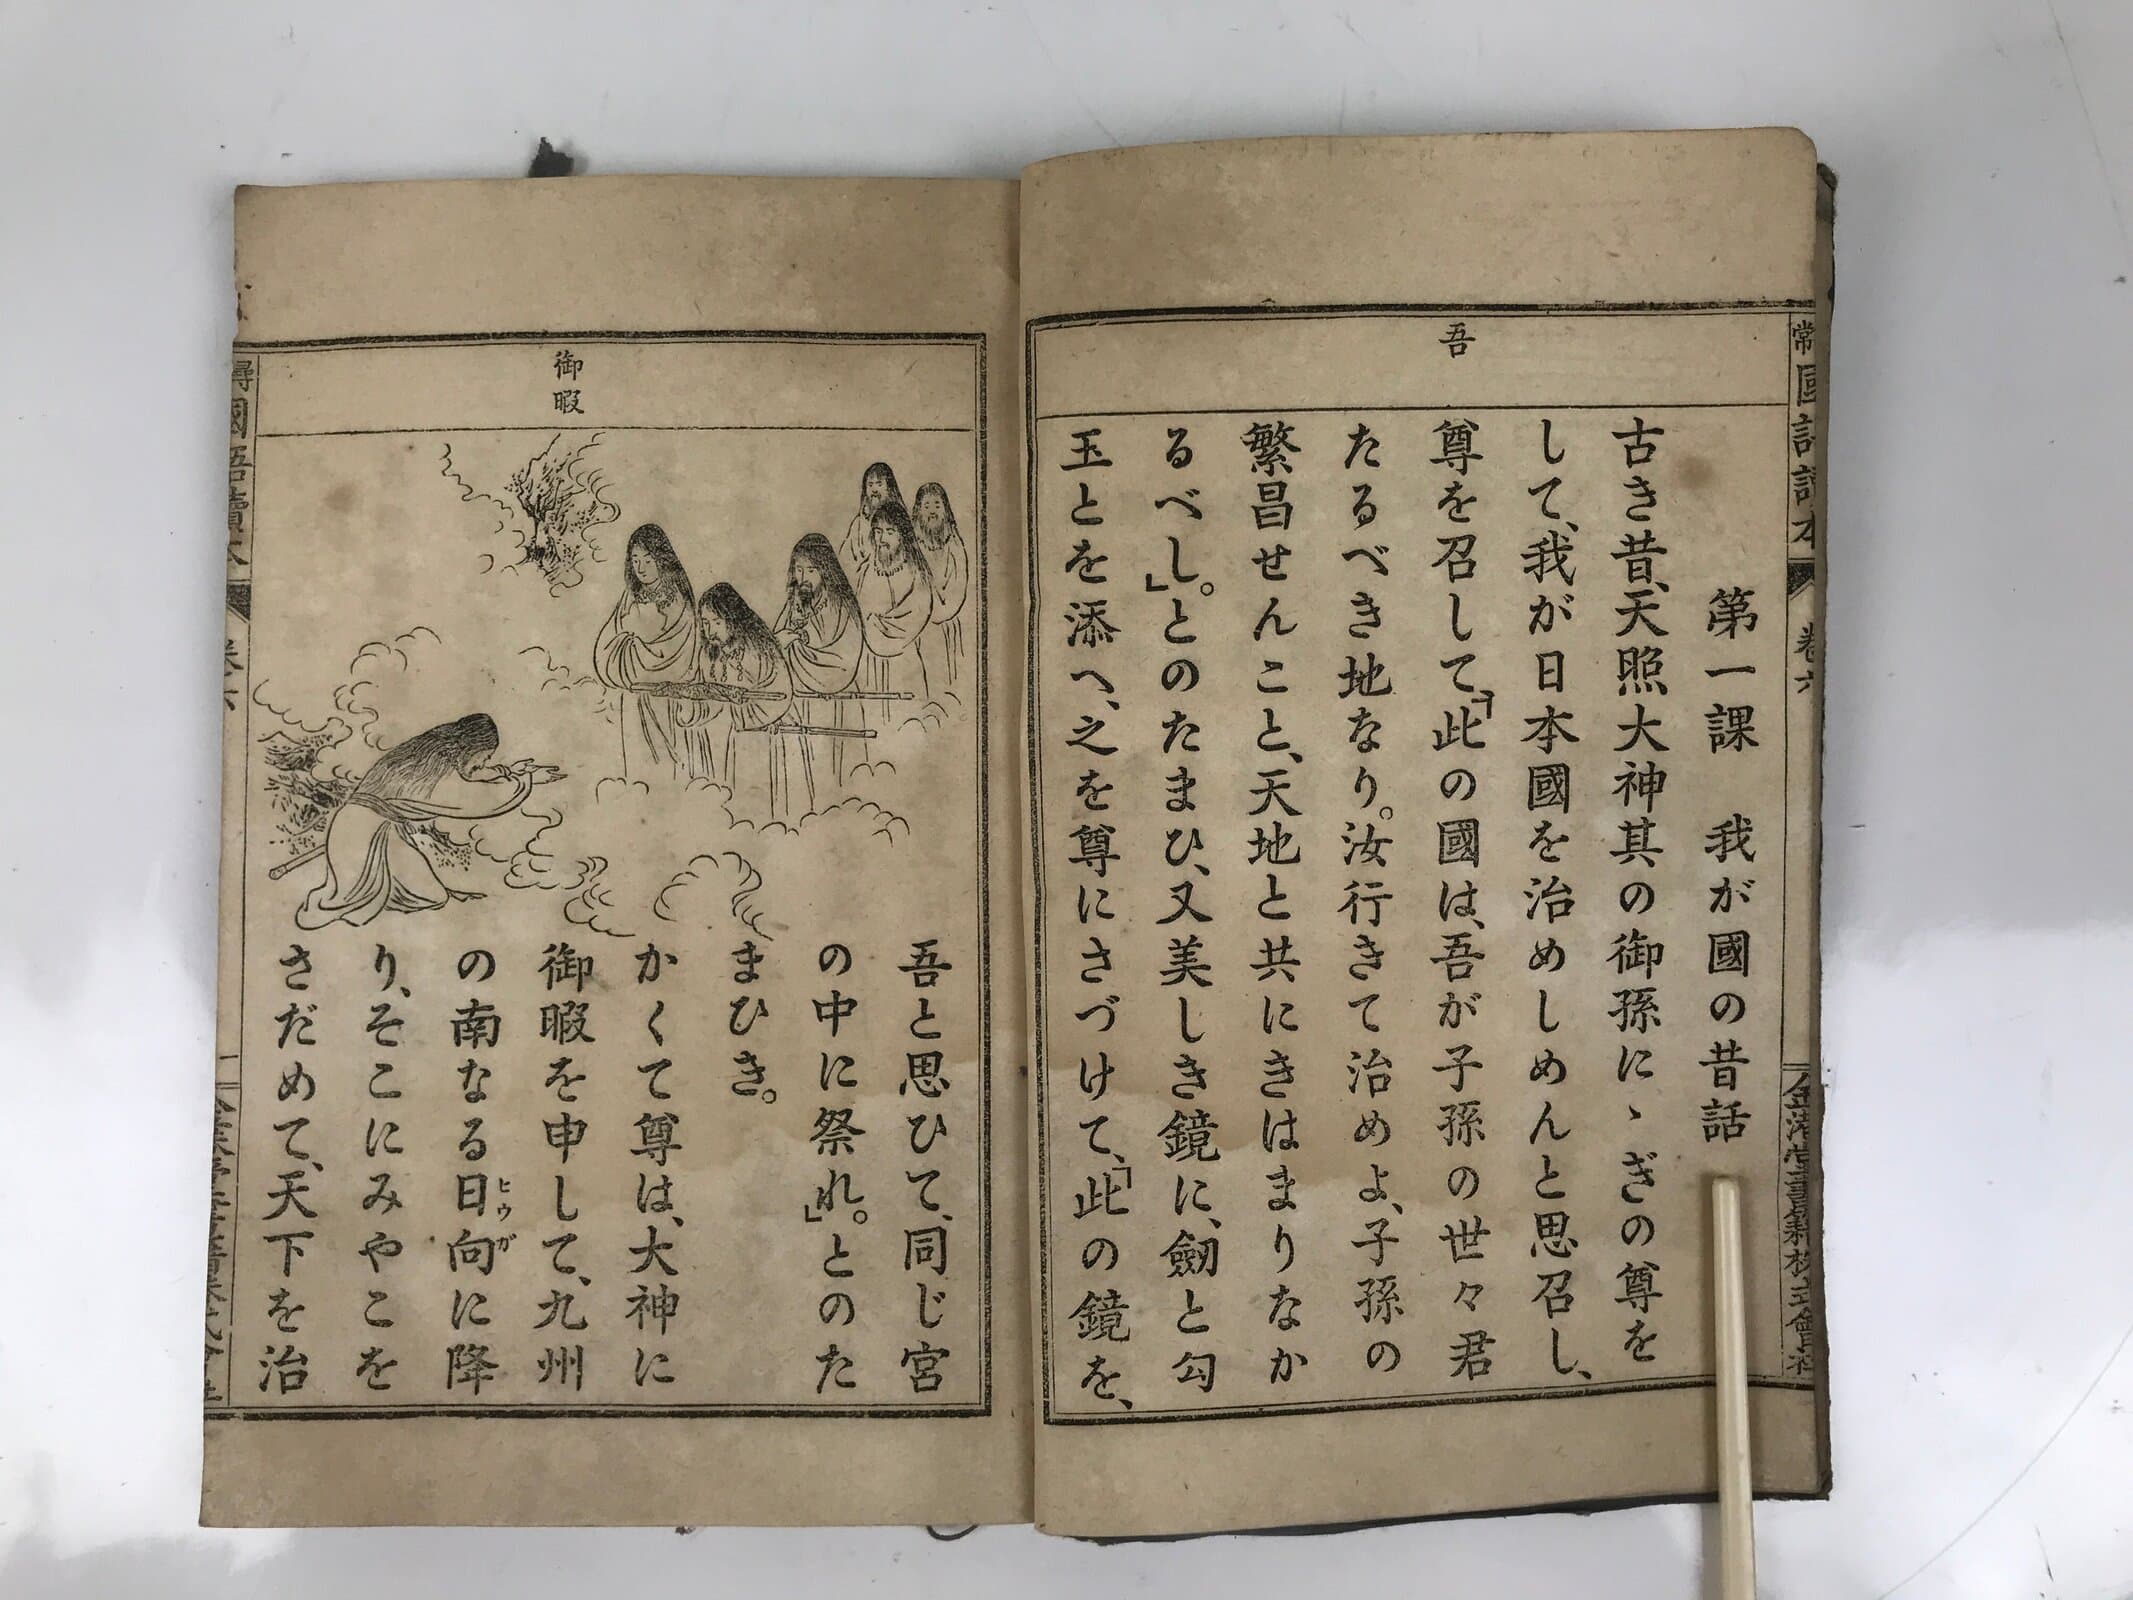 吾
第一課　我が國の昔話
古き昔、天照大神其の御孫にゝぎの尊を
して、我が日本國を治めしめんと思召し、
尊を召して、「此の國は、吾が子孫の世々君
たるべき地なり。汝行きて治めよ、子孫の
繁昌せんこと、天地と共にきはまりなか
るべし。」とのたまひ、又美しき鏡に、劔と勾
玉とを添へ、之を尊にさづけて、「此の鏡を、
御暇
吾と思ひて、同じ宮
の中に祭れ。」とのた
まひき。
かくて尊は、大神に
御暇を申して、九州
の南なる日向に降
ヒウガ
り、そこにみやこを
さだめて、天下を治
尋國語讀本
卷六
一
常國語讀本
卷六
金港堂書籍株式會社